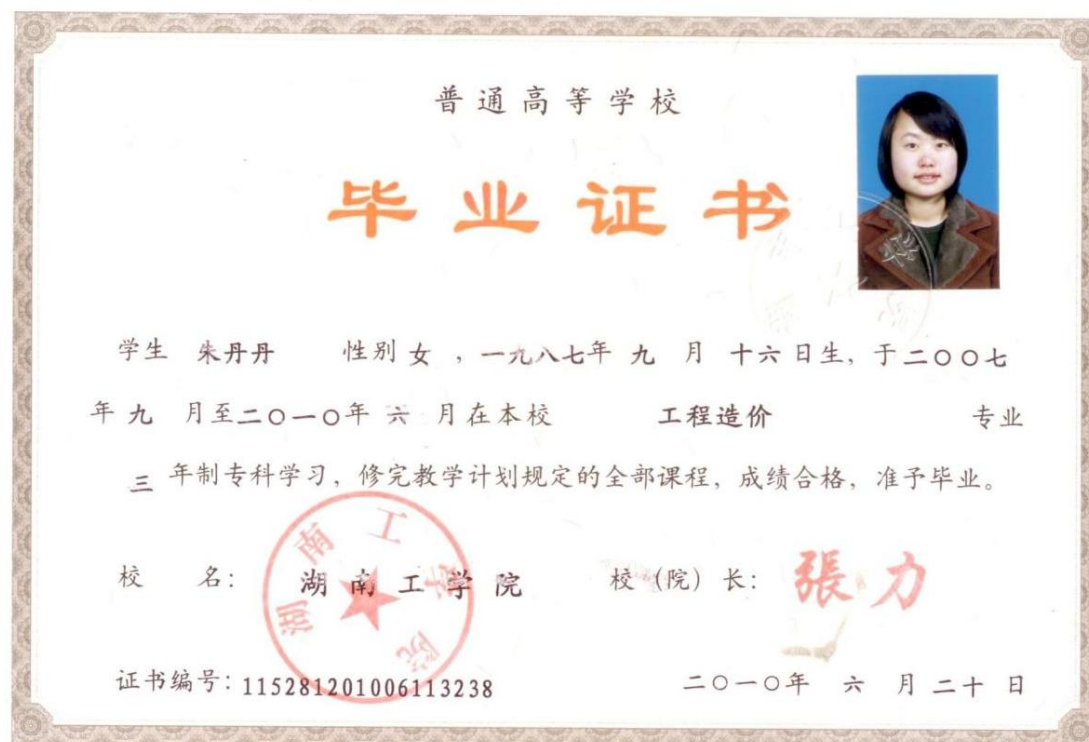 普通高等学校
毕业证书
学生 朱丹丹 性别 女 ，一九八七年 九 月 十六日生，于二〇〇七
年 九 月至二〇一〇年 六 月在本校 工程造价 专业
三 年制专科学习，修完教学计划规定的全部课程，成绩合格，准予毕业。
校 名： 湖南工学院 校（院）长： 張力
湖南工学院
证书编号：115281201006113238 二〇一〇年 六 月 二十 日